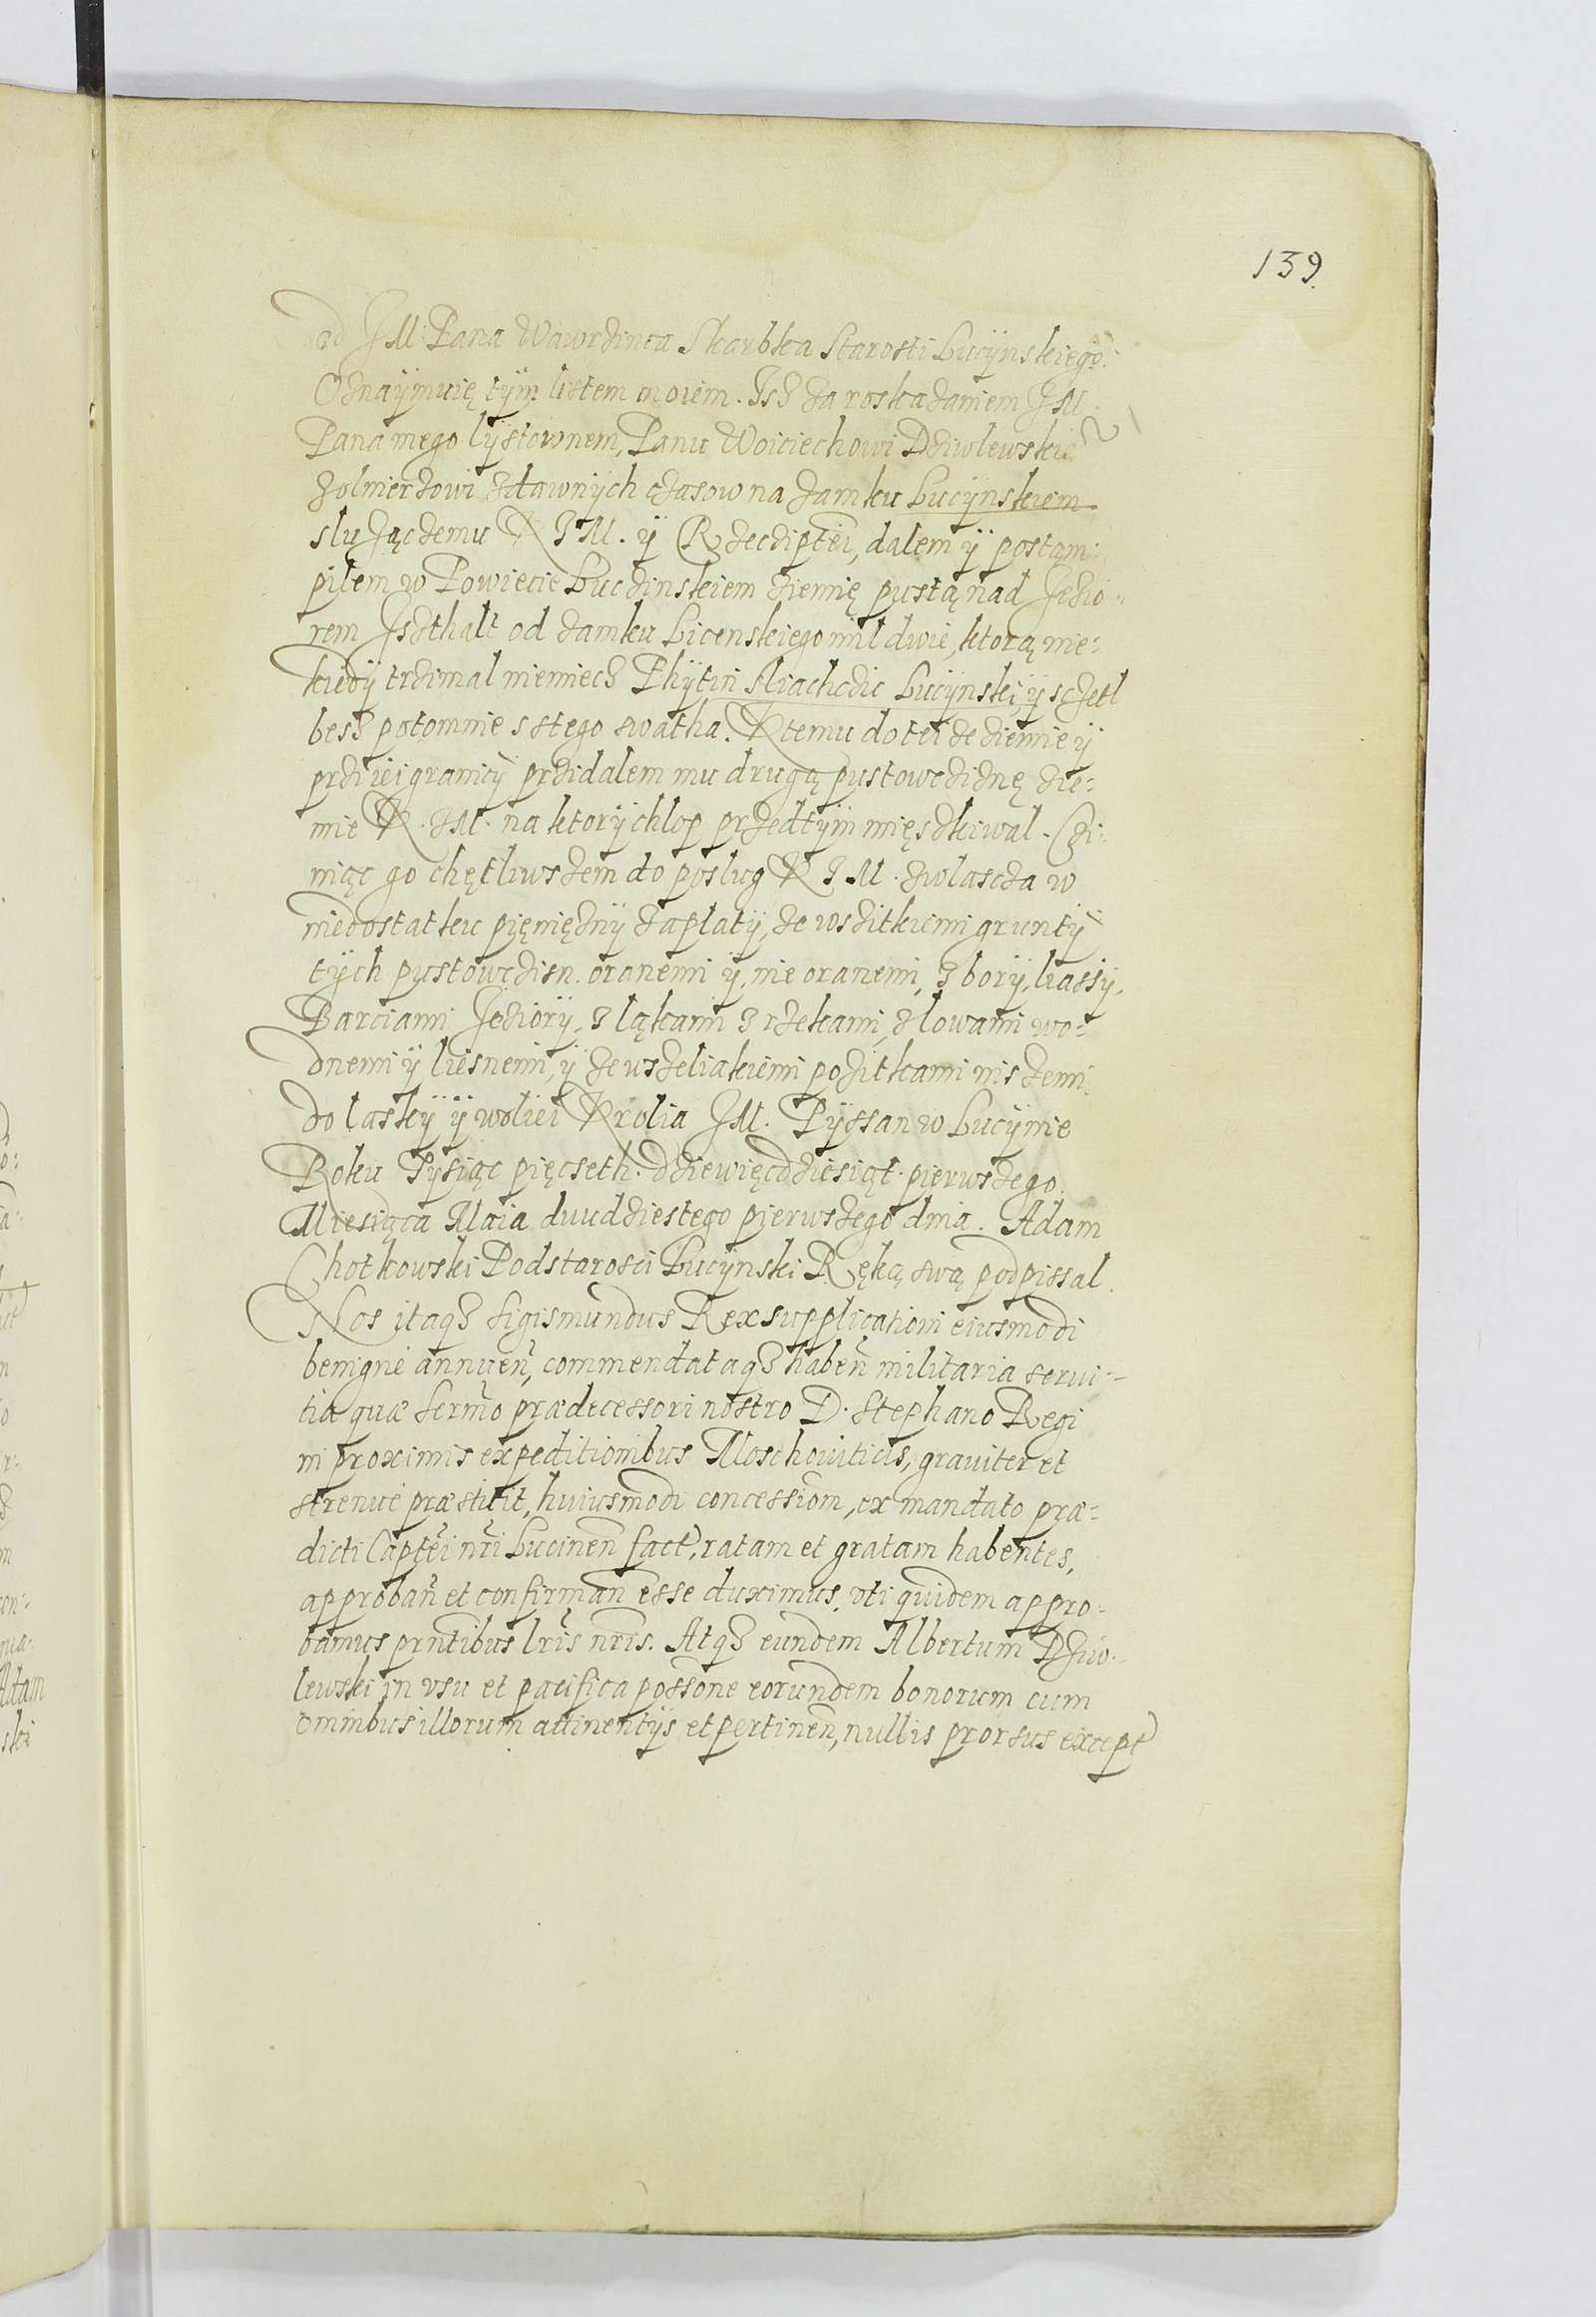 139.
od JM: Pana Wawrzinca Skarbka Starosti Lucÿnskiego:
Oznaÿmuię tÿm listem moiem. Isz za roskazaniem JM
Pana mego lÿstownem, Panu Woiciechowi Dziwlewskie
Zolnierzowi zdawnÿch czasow na zamku Lucÿnskiem
sluzączemu K I M. ÿ Rzeczipten, dalem ÿ postąm:
pilem w Powiecie Luczinskiem ziemię pustą nad Jezio:
rem Iszthalt od zamku Licenskiego mil dwie, ktorą nie:
kiedÿ trzimal niemiecz Phÿtin sliachczic Lucÿnski, ÿ sczetl
besz potomnie s stego swatha. K temu do tei ze ziemie ÿ
przi iei granicÿ przidalem mu drugą pustowcziznę zie:
mie K. JM. na ktorÿ chlop przedtÿm mięszkiwal. Czi:
niąc go chętliwszem do poslug K I M. zwlascza w
niedostatku pięniędzÿ zaplatÿ, ze wszitkiemi gruntÿ
tÿch pustowczisn. oranemi ÿ, nie oranemi, z borÿ, liassÿ,
Barciami Jeziorÿ, z ląkami z rzekami, z lowami wo:
dnemi ÿ liesnemi, ÿ ze wszeliakiemi pozitkami niszemi
do laskÿ ÿ woliei Krolia JM. Pÿssan w Lucÿnie
Roku Tÿsiąc pięcseth. dziewięcdziesiąt. pierwszego.
Miesiąca Maia dwudziestego pierwszego dnia. Adam
Chotkowski Podstarosci Lucÿnski Ręką swą podpissal.
Nos itaqз Sigismundus Rex supplicationi eiusmodi
benigne annuen, commendataqз haben militaria serui:
tia quæ Sermo prædecessori nostro D. Stephano Regi
in proximis expeditionibus Moschouiticis, grauiter et
strenue præstitit, huiusmodi concessiom, ex mandato præ:
dicti Captei nri Lucinen fact, ratam et gratam habentes,
approban et confirman esse duximus, vti quidem appro:
bamus prntibus lris nris. Atqз eundem Albertum Dziw:
lewski in vsu et pacifica possone eorundem bonorum cum
omnibus illorum attinentÿs et pertinen, nullis prorsus except